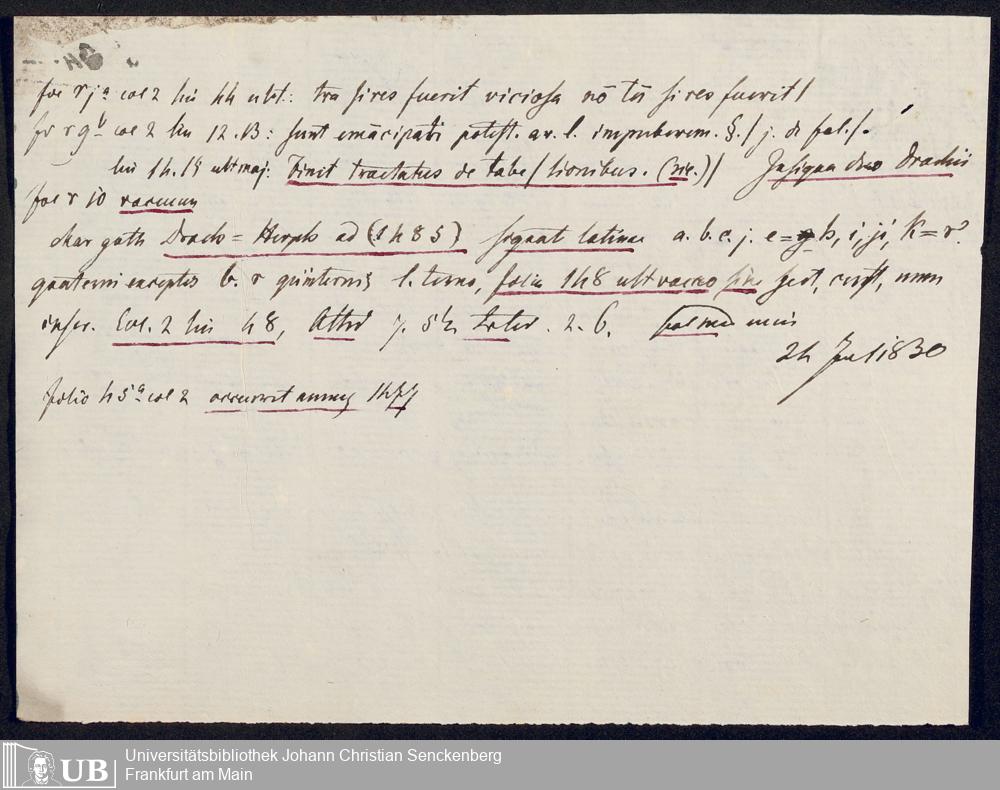 fol r j a col 2 lin 44 ult.: tra si res fuerit viciosa nō tn̄ si res fuerit/
fol r 9 b col 2 lin 12.13: sunt emācipati potest. ar. l. impuberem. §./ j. de fal./.
lin 14.15 ult maj: Finit tractatus de tabe/lionibus. (sic.)/ Insigna duo Drachii
fol r 10 vacuum
char goth Drach= Herpb ad (1485) signat latinae a. b. c. j. e= h, i, ji, k=r?
quaterni exceptis b. r quinternis l. terno, foliis 148 ult vacuo sine
infer. Col. 2 lin 48, Altid 7. 5½ Latid. 2. 6.
24 Jul 1830
folio 45 a col 2 occurrit annus 1477
Universitätsbibliothek Johann Christian Senckenberg
UB Frankfurt am Main